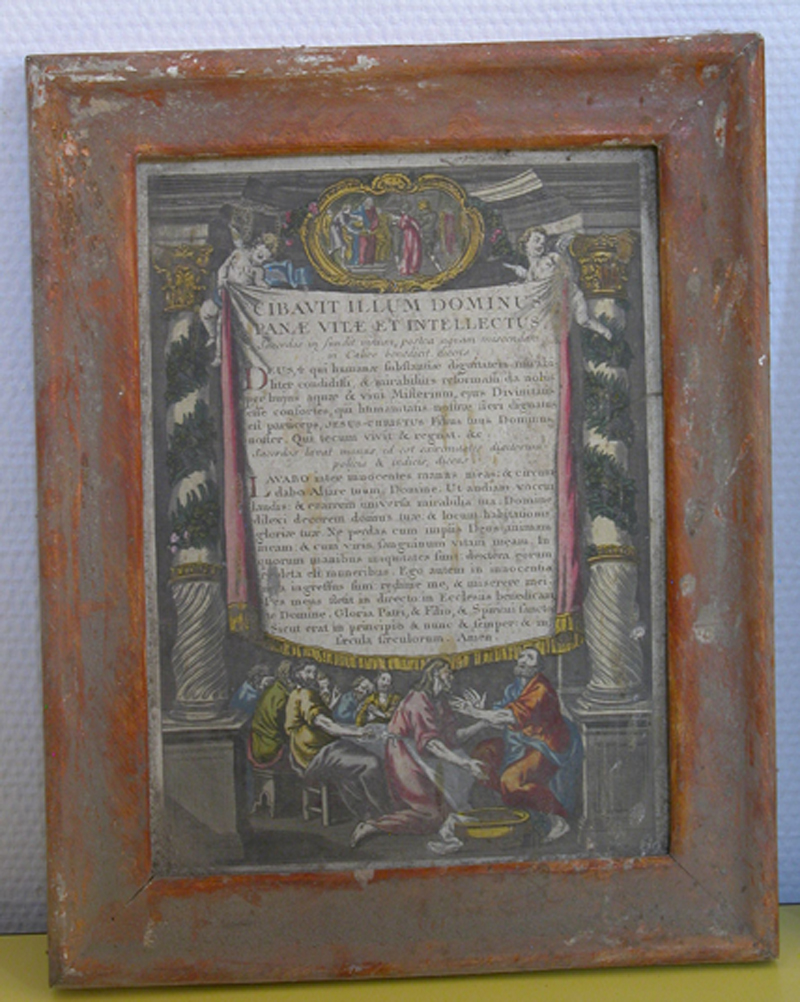 CIBAVIT ILLUM DOMINUS
PANÆ VITÆ ET INTELLECTUS
postea aquam
in Calice benedicit dicens
DEUS, ✝ qui humanæ substantiæ dignitatem mirabi-
liter condidisti, & mirabilius reformasti da nobis
per hujus aquæ & vini Misterium, ejus Divinitatis
esse consortes, qui humanitatis nostræ fieri dignatus
est particeps, JESUS-CHRISTUS Filius tuus Dominus
noster. Qui tecum vivit & regnat. &c.
Sacerdos lavat manus, id est extremitates digitorum
policis & indicis, dicens
LAVABO inter innocentes manus meas: & circum
dabo Altare tuum, Domine. Ut audiam vocem
laudis: & enarrem universa mirabilia tua. Domine
dilexi decorem domus tuæ: & locum habitationis
gloriæ tuæ. Ne perdas cum impiis Deus animam
meam: & cum viris sanguinum vitam meam. In
quorum manibus iniquitates sunt: dextera eorum
repleta est muneribus. Ego autem in innocentia
ingressus sum: redime me, & miserere mei.
Pes meus stetit in directo in Ecclesiis benedicam
te Domine. Gloria Patri, & Filio, & Spiritui sancto
Sicut erat in principio & nunc & semper: & in
sæcula sæculorum. Amen.